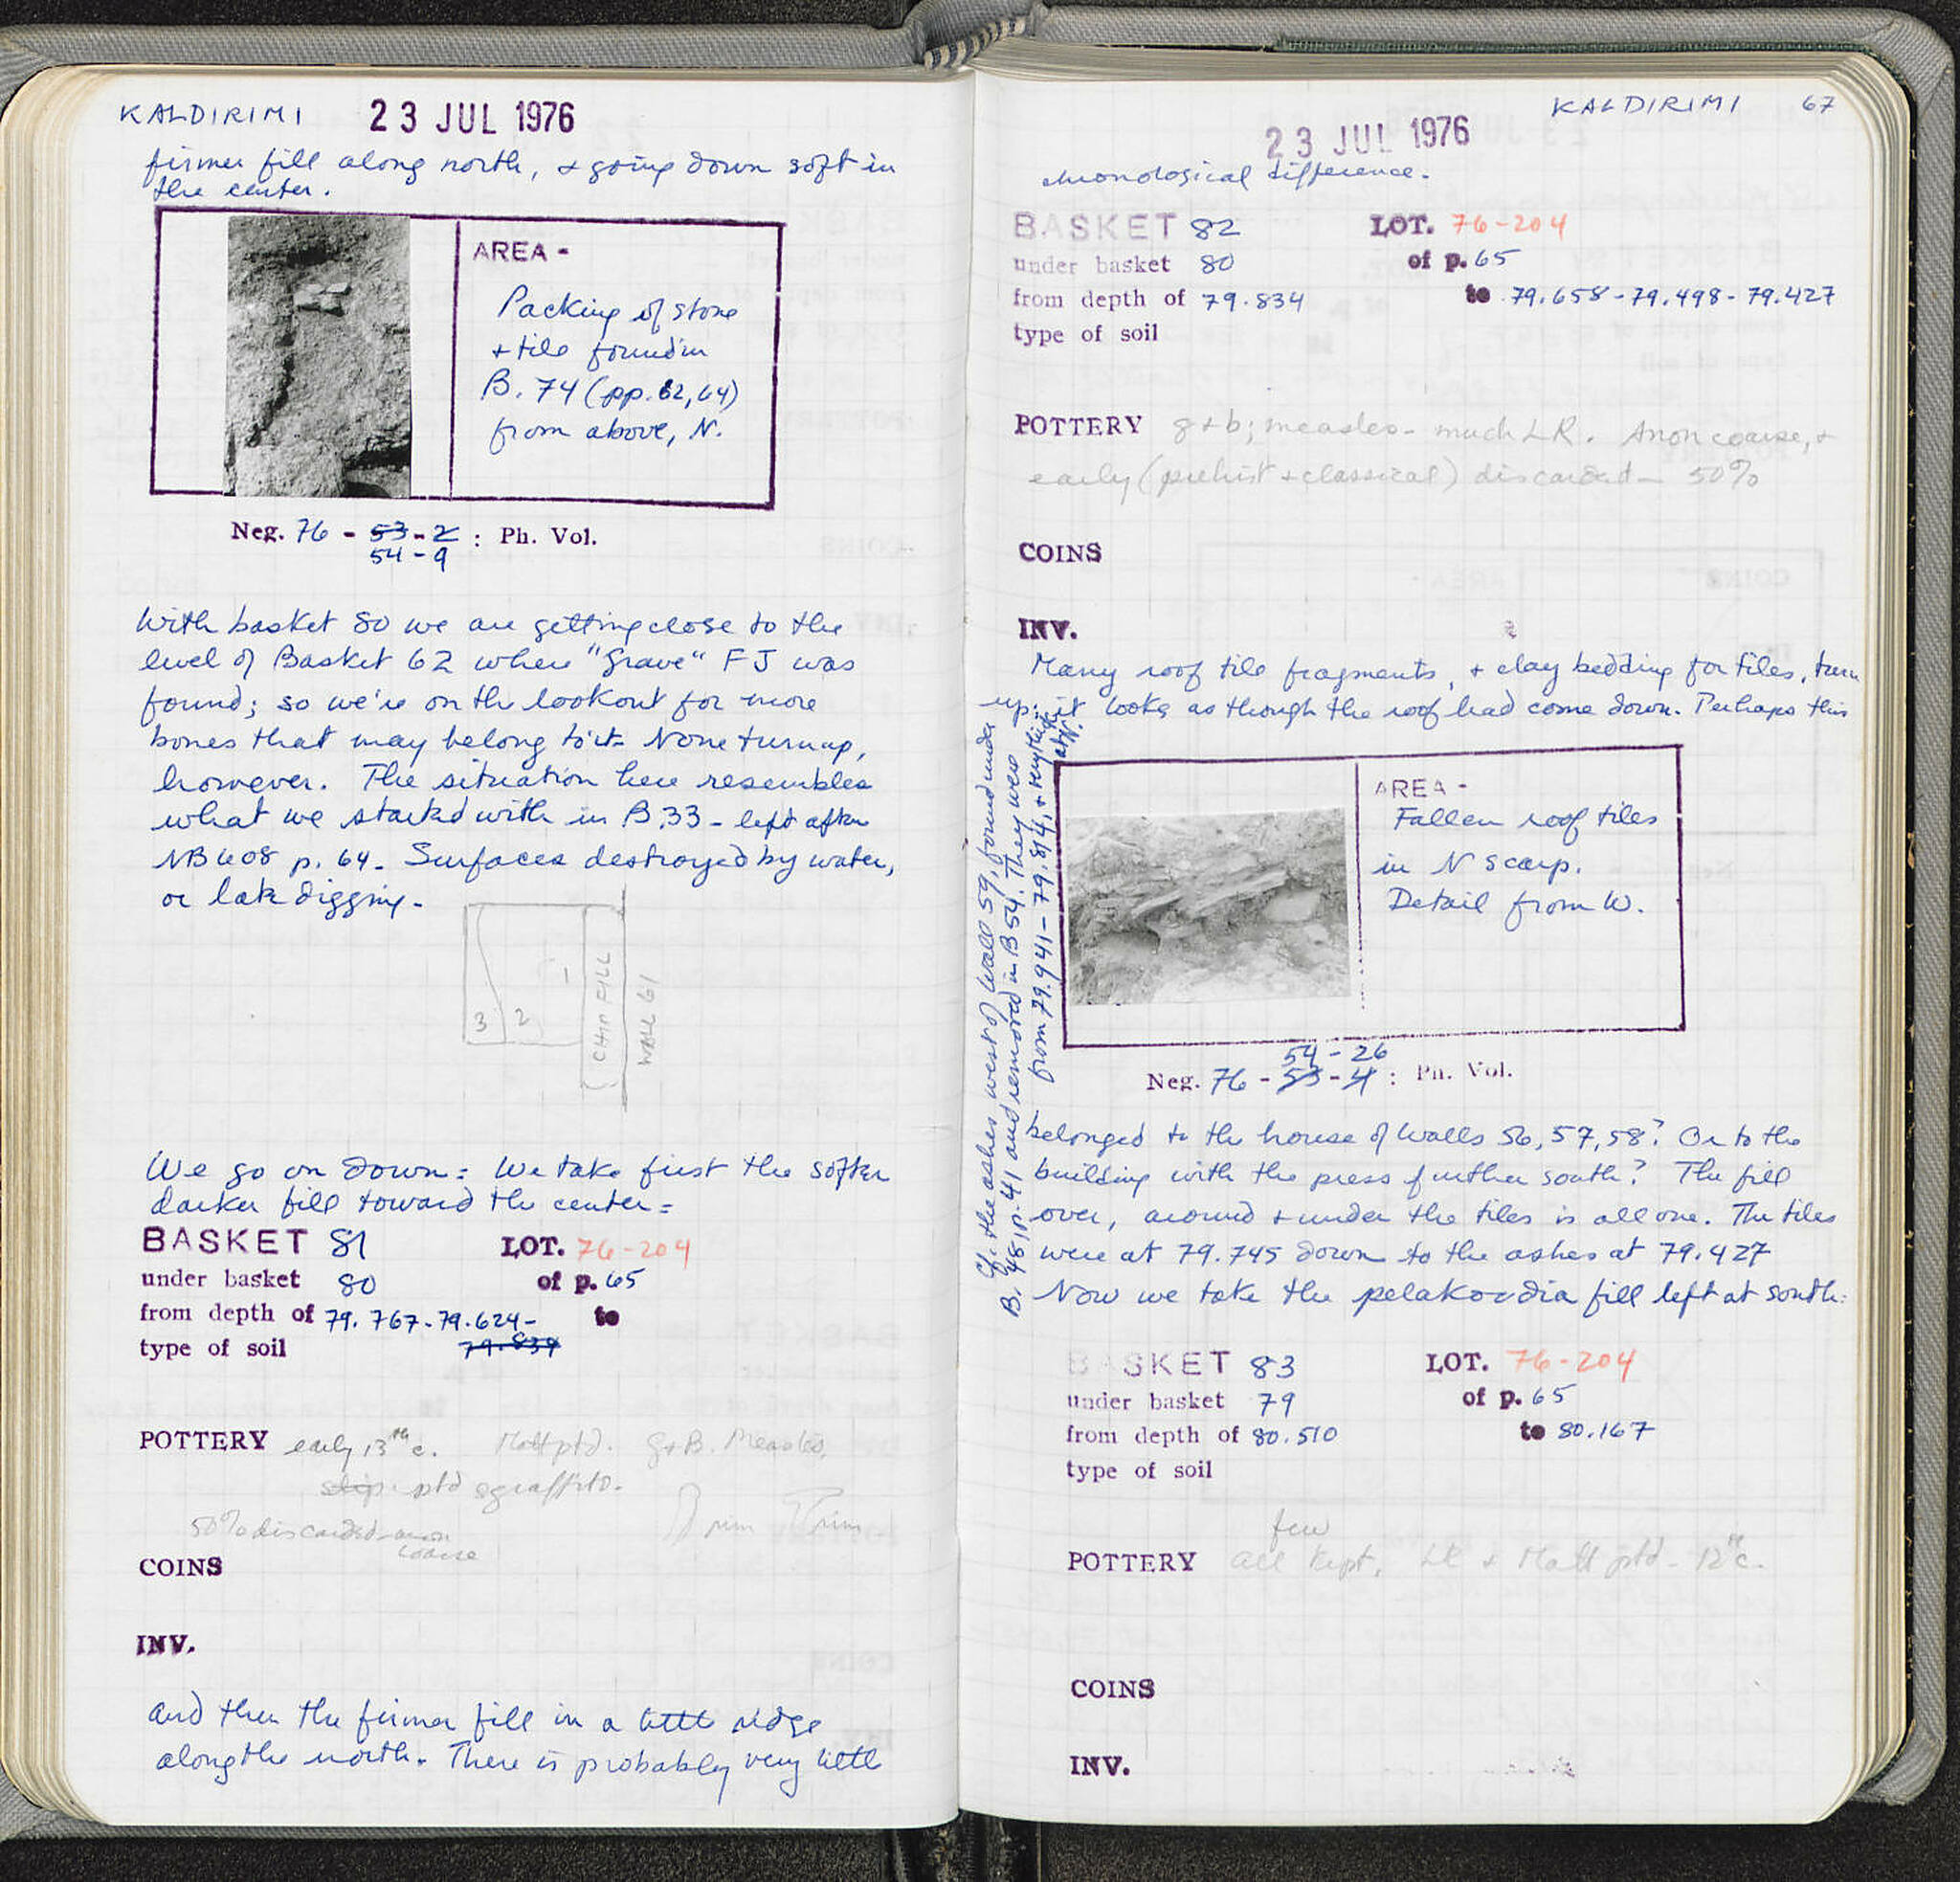 KALDIRIMI 23 JUL 1976
firmer fill along north, & going down soft in
the center.
AREA -
Packing of stone
& tile found in
B. 74 (pp. 62, 64)
from above, N.
Neg. 76 - 53 - 2 : Ph. Vol.
54 - 9
With basket 80 we are getting close to the
level of Basket 62 where "grave" FJ was
found; so we're on the lookout for more
bones that may belong to it. None turn up,
however. The situation here resembles
what we started with in B.33 - left after
NB 608 p. 64. Surfaces destroyed by water,
or late digging.
3 2 1
CHIP FILL
WALL 61
We go on down: We take first the softer
darker fill toward the center:
BASKET 81 LOT. 76-204
under basket 80 of p. 65
from depth of 79.767-79.624- to
type of soil 79.834
POTTERY early 13th c. Matt ptd. g+B. Measles,
slip. ptd sgraffito.
rim rim
50% discarded - anon
coarse
COINS
INV.
and then the firmer fill in a little ridge
along the north. There is probably very little
KALDIRIMI 67
23 JUL 1976
chronological difference.
BASKET 82 LOT. 76-204
under basket 80 of p. 65
from depth of 79.834 to 79.658-79.498-79.427
type of soil
POTTERY g+b; measles - much LR. Anon coarse, &
early (prehist + classical) discarded - 50%
COINS
INV.
Many roof tile fragments, & clay bedding for tiles, turn
up: it looks as though the roof had come down. Perhaps this
AREA -
Fallen roof tiles
in N scarp.
Detail from W.
54 - 26
Neg. 76 - 53 - 4 : Ph. Vol.
Cf. the ashes west of Wall 59, found under
B. 48, p. 41 and removed in B 54. They were
from 79.941 - 79.814, & everything
at N.
belonged to the house of Walls 56, 57, 58? Or to the
building with the press further south? The fill
over, around & under the tiles is all one. The tiles
were at 79.745 down to the ashes at 79.427
Now we take the pelakordia fill left at south:
BASKET 83 LOT. 76-204
under basket 79 of p. 65
from depth of 80.510 to 80.167
type of soil
few
POTTERY all kept, LR & Matt ptd - 12th c.
COINS
INV.